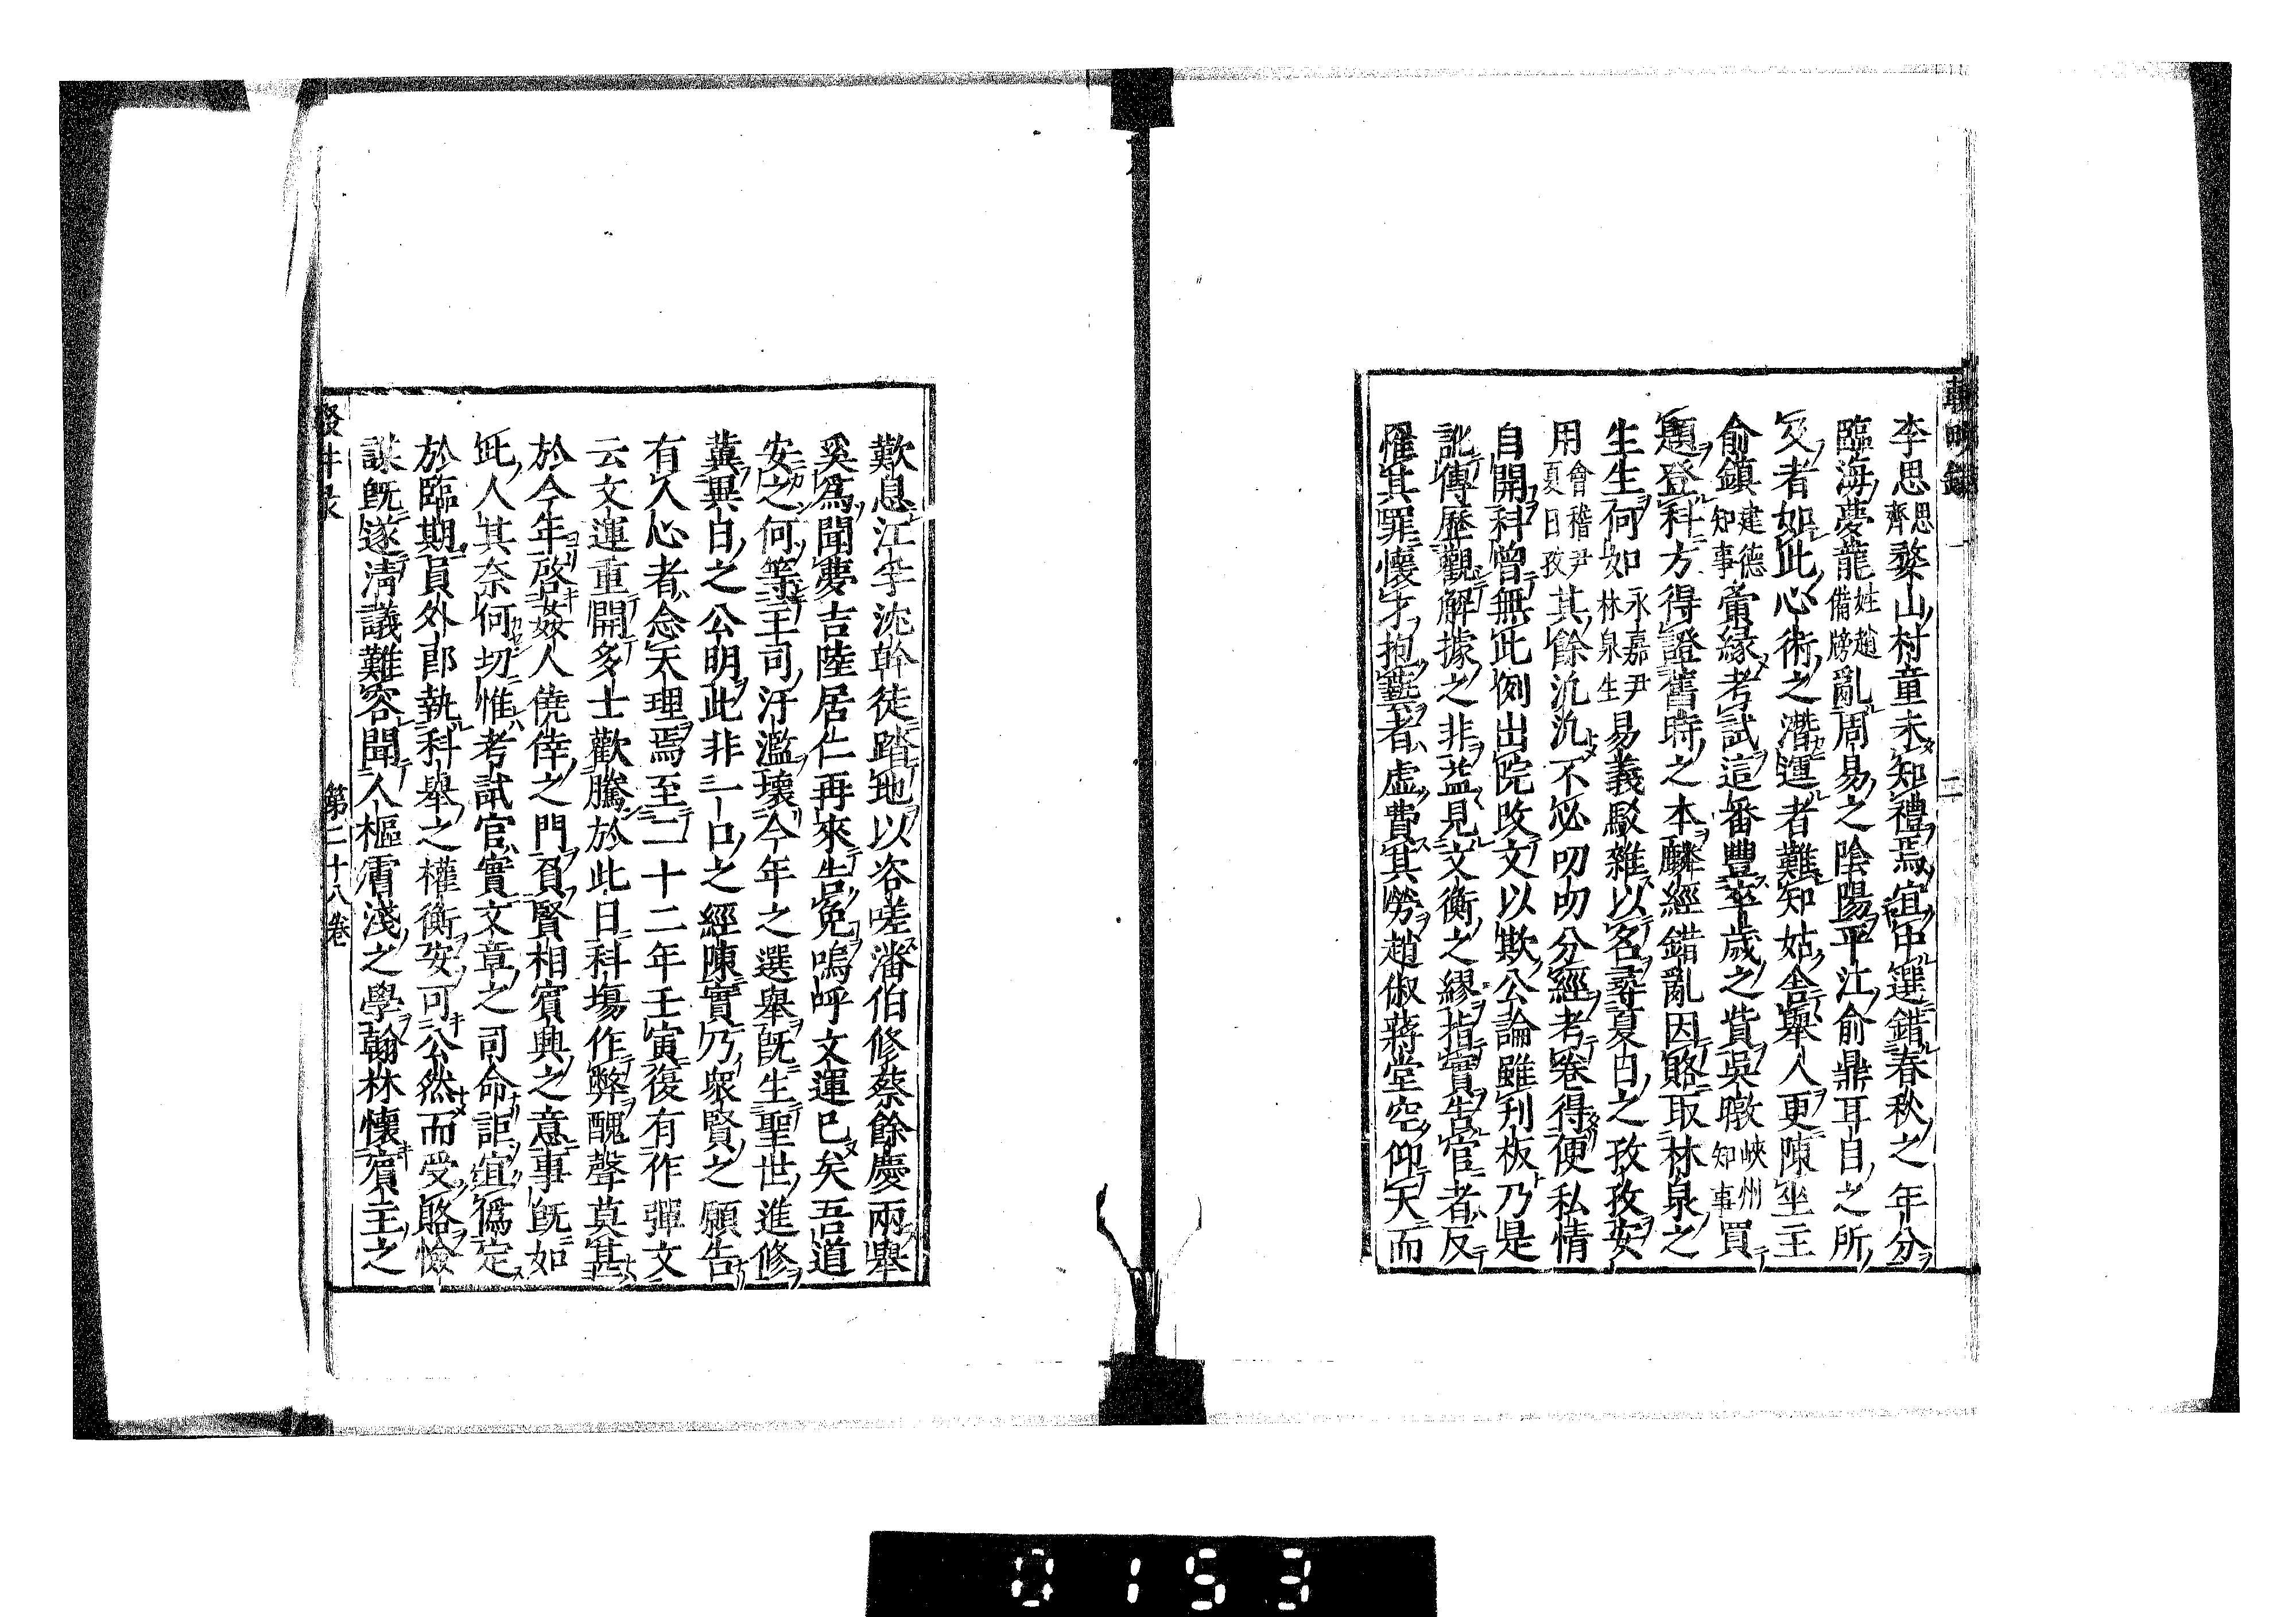 李思思齊婺山村童未知禮焉宜中選錯春秋之年分
臨海夢龍姓趙備牓亂周易之陰陽平江俞鼎耳目之所
及者如此心術之潛運者難知姑舍舉人更陳坐主
俞鎮建德知事夤緣考試這番豐卒歲之貲吳暾峽州知事買
題登科方得證舊時之本麟經錯亂因賂取林泉之
生生何如永嘉尹林泉生易義駁雜以名尋夏日之孜孜安
用會稽尹夏日孜其餘汎汎不必叨叨分經考卷得便私情
自開科曾無此例出院改文以欺公論雖刊板乃是
訛傳歷觀解據之非益見文衡之繆指實告官者反
罹其罪懷才抱藝者虛費其勞趙俶蔣堂空仰天而
歎息江孚沈幹徒踏地以咨嗟潘伯修蔡餘慶兩舉
奚為聞夢吉陸居仁再來告免嗚呼文運已矣吾道
安之何等主司汙濫壞今年之選舉既生聖世進修
冀異日之公明此非一口之經陳實乃眾賢之願告
有人心者念天理焉至二十二年壬寅復有作彈文
云文運重開多士歡騰於此日科場作弊醜聲莫甚
於今年啓姦人僥倖之門負賢相賓興之意事既如
此人其奈何切惟考試官實文章之司命詎宜僞定
於臨期員外郎執科舉之權衡安可公然而受賂憸
謀既遂淸議難容聞人樞膚淺之學翰林懷賓主之
第二十八卷